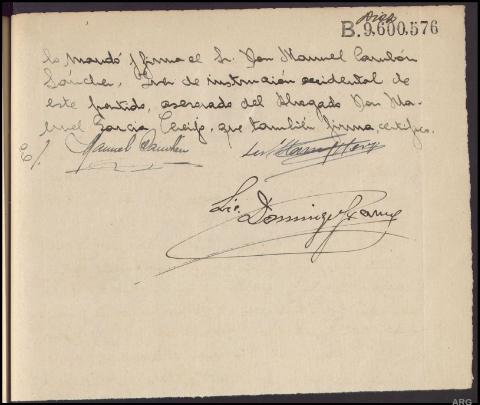 Diez
B.9.600,576
lo mandó y firma el Sr. Don Manuel Cambón
Sánchez, Juez de instrucción accidental de
este partido, asesorado del Abogado Don Ma-
nuel García Cereijo, que también firma, certifico.
E/. Manuel Cambón
Lic. Domingo
ARG